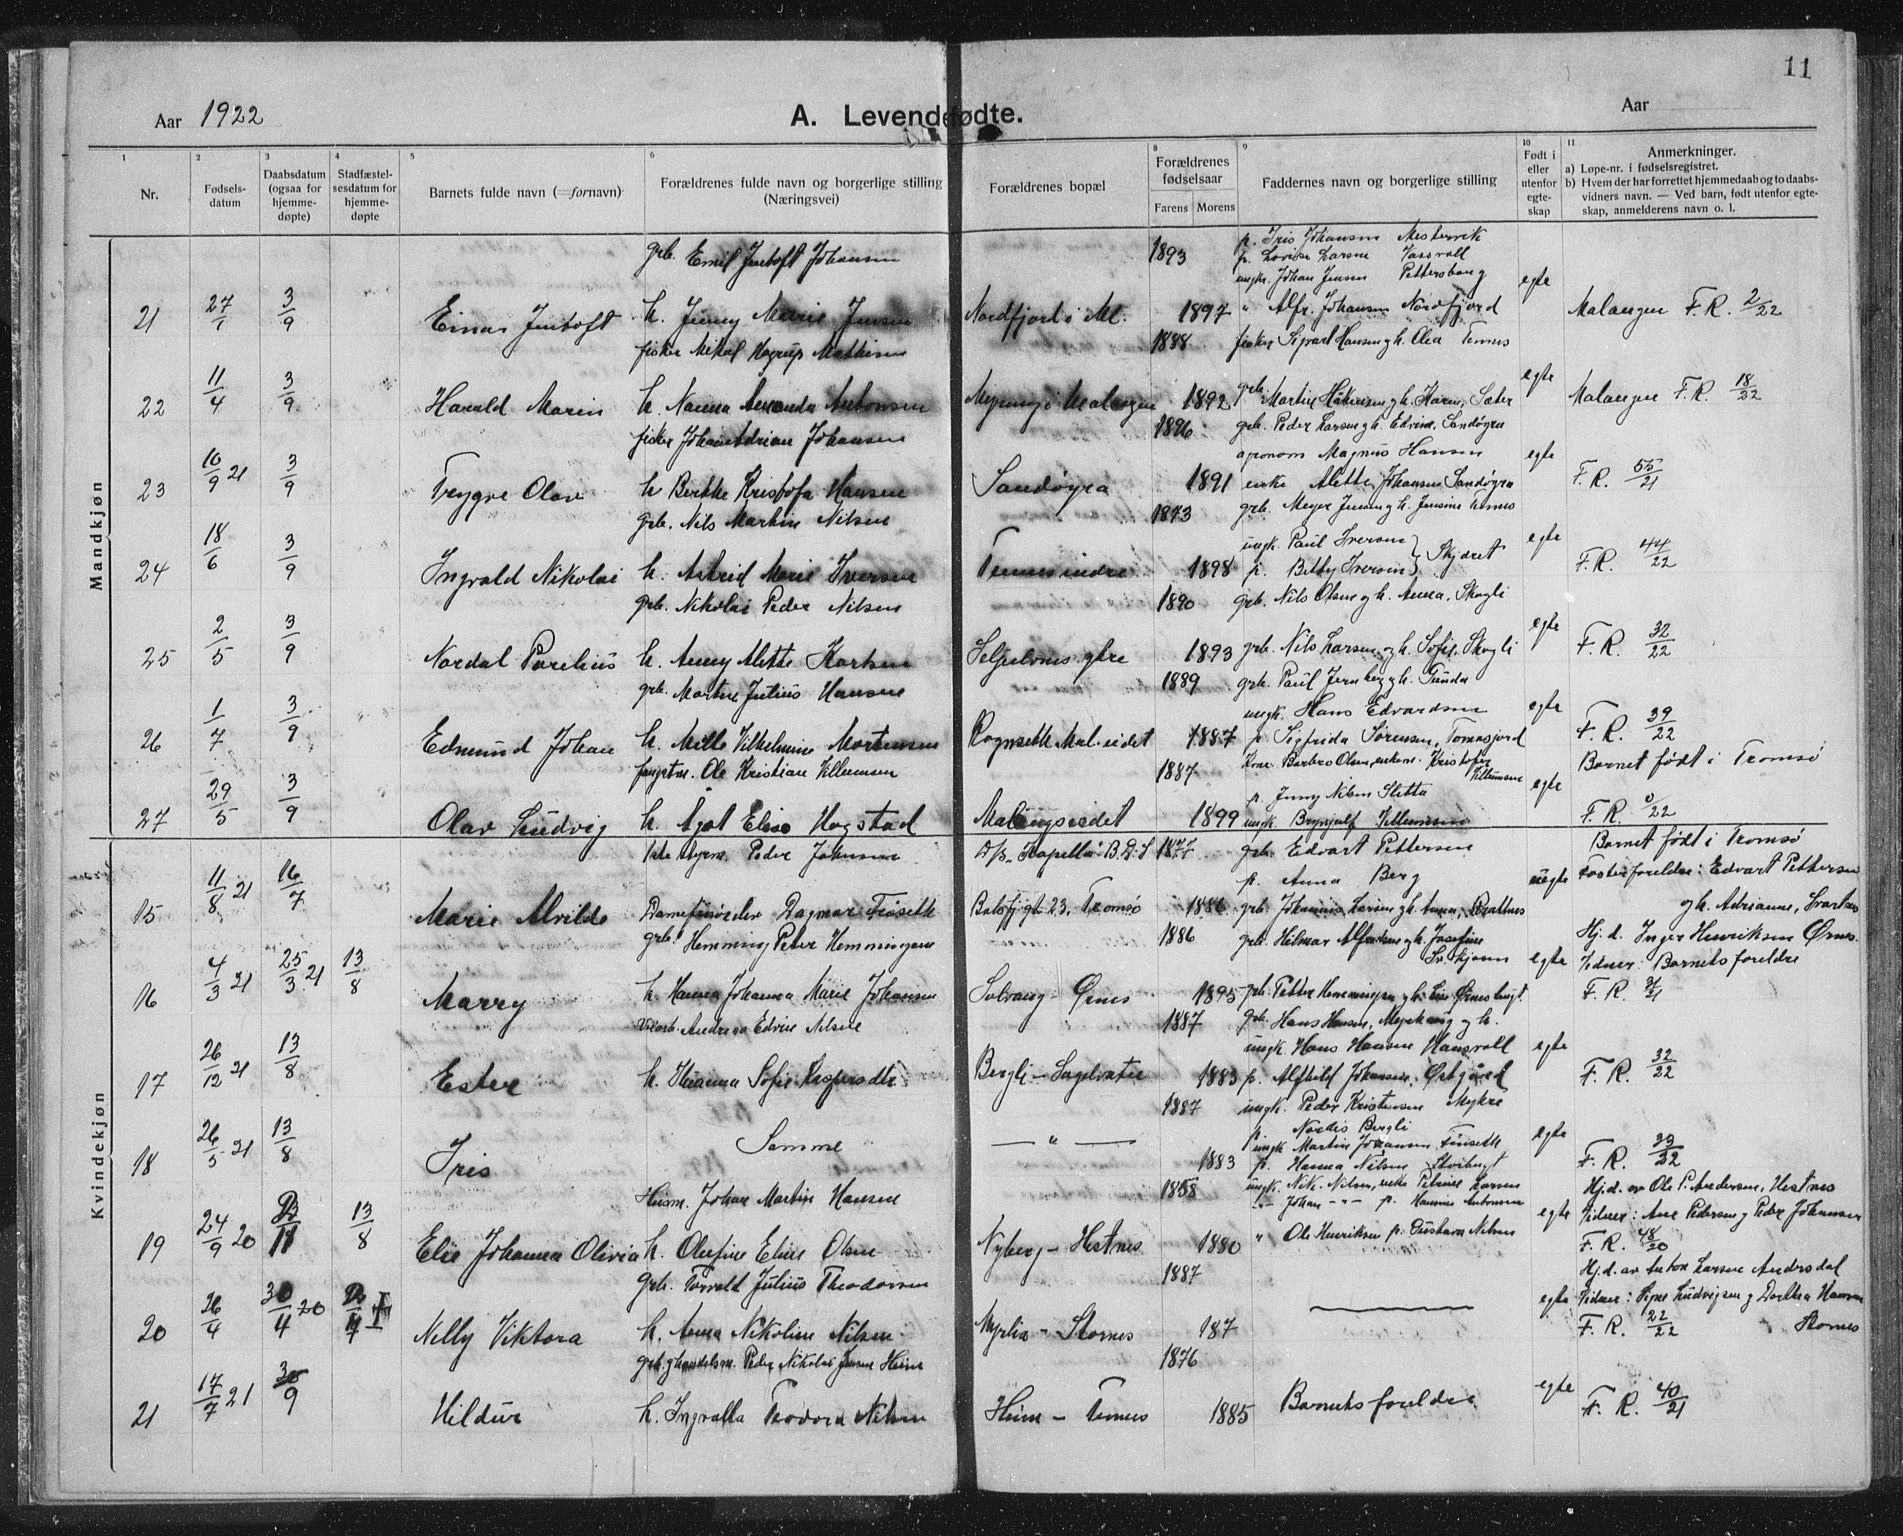 11
Aar 1922
A. Levendefødte.
Aar
1 2 3 4 5 6 8 9 10 11
Nr.
Fødsels-
datum
Daabsdatum
(ogsaa for
hjemme-
døpte)
Stadfæstel-
sesdatum for
hjemme-
døpte
Barnets fulde navn (=fornavn)
Forældrenes fulde navn og borgerlige stilling
(Næringsvei)
Forældrenes bopæl
Forældrenes
fødselsaar
Farens Morens
Faddernes navn og borgerlige stilling
Født i
eller
utenfor
egte-
skap
Anmerkninger.
a) Løpe-nr. i fødselsregistret.
b) Hvem der har forrettet hjemmedaab og to daabs-
vidners navn. — Ved barn, født utenfor egte-
skap, anmelderens navn o. l.
Mandkjøn
grb. Emil Jentoft Johansen 1893 p. Iris Johansen Mestervik
p. Lovise Larsen
ungk. Johan Jensen Pettersborg egte
21 27/7 3/9 Einar Jentoft h. Jenny Marie Jensen Nordfjord i Ml. 1897 " Alfr. Johansen Nordfjord Malangen F.R. 2/22
fisker Mikal Hagrup Mathisen 1888 fisker Sigvart Hansen g h. Olea Tennes
22 11/4 3/9 Harald Marin h. Nanna Amanda Antonsen i Malangen 1892 grb. Martin Håkensen g h. Karen, Sæter egte Malangen F.R. 18/22
fisker Johan Adrian Johansen 1896 grb. Peder Larsen g h. Edvine, Sandøyra
agronom Magnus Hansen egte
23 10/9 21 3/9 Trygve Olav h. Berthe Kristofa Hansen Sandøyra 1891 enke Alette Johansen Sandøyra F.R. 55/21
grb. Nils Martin Nilsen 1873 grb. Meyer Jensen g h. Jensine Tennes
ungk. Paul Iversen egte
24 18/6 3/9 Ingvald Nikolai h. Astrid Marie Iversen Tennes indre 1898 p. Betty Iversen Skjæret F.R. 44/22
grb. Nikolai Peder Nilsen 1890 grb. Nils Olsen g h. Anna, Skogli
25 2/5 3/9 Nordal Parelius h. Anny Alette Karlsen Seljelvnes ytre 1893 grb. Nils Larsen og h. Sofie, Skogli egte F.R. 32/22
grb. Morten Julius Hansen 1889 grb. Paul Jernberg g h. Gunda
ungk. Hans Edvardsen egte
26 1/7 3/9 Edmund Johan h. Milla Vilhelmine Mortensen Rognseth Mal.eidet 1887 p. Sigfrida Sørensen, Tomasjord F.R. 39/22
fangstm. Ole Kristian Villumsen 1887 Kone Barbro Olsen, enkem. Kristofer Villumsen Barnet født i Tromsø
p. Jenny Nilsen Sletta egte
27 29/5 3/9 Olav Ludvig h. Agot Elise Hogstad Malangseidet 1899 ungk. Brynjulf Villumsen F.R. 0/22
Kvindekjøn
1ste styrm. Peder Johnsen D/s "Kapella" B.D.S 1877 grb. Edvart Pettersen Barnet født i Tromsø
p. Anna Berg uegte Fosterforeldre: Edvart Pettersen
15 11/8 21 16/7 Marie Alvilde Damefrisørelev Dagmar Frøseth Balsfj gt. 23, Tromsø 1886 grb. Johannes Larsen g h. Anna, g h. Adrianne, Svartnes
grb. Hemming Peter Hemmingsen 1886 grb. Hilmar Alfredsen g h. Josefine Hj.d. Inger Henriksen Ørnes.
egte Vidner: Barnets foreldre
16 4/3 21 25/3 21 13/8 Marry h. Hanna Johanna Marie Johansen Solvang - Ørnes 1895 grb. Petter Hemmingsen g h. F.R. /21
Andreas Edvin Nilsen 1887 grb. Hans Hansen, g h.
ungk. Hans Hansen Hansvoll egte
17 26/12 21 13/8 Ester h. Sofie Bergli - Sagelvvatn 1883 p. Alfhild Johansen, Østgård F.R. 32/22
1887 ungk. Peder Kristensen Mykre
p. Nordis Bergli egte
18 26/5 21 13/8 Iris Samme — " — 1883 ungk. Martin Johansen
p. Hanna Nilsen F.R. 33/22
Husm. Johan Martin Hansen 1858 ungk. Nik. Nilsen, enke Petrine Larsen Hj.d. av Ole P. Andersen, Hestnes
" Johan — " — p. Hansine Antonsen egte Vidner: Ane Pedersen g Peder Johansen
19 24/9 20 11 13/8 Elie Johanna Olivia h. Olufine Eline Olsen Nyberg - Hestnes 1880 " Ole Henriksen p. Gustava Nilsen F.R. 48/20
grb. Torvald Julius Theodorsen 1887 Hj.d. av Anton Larsen Andersdal
egte Vidner: Signe Ludvigsen g Dorthea Hansen
20 26/4 30/4 20 Nelly Viktora h. Anna Nikoline Nilsen Myrlia - Stornes 187 F.R. 22/22 Stornes
grb. g handelsm. Peder Nikolai Jensen Heim 1876
21 17/7 21 30/9 Hildur h. Ingvalla Teodora Nilsen Heim - Tennes 1885 Barnets foreldre egte F.R. 40/21